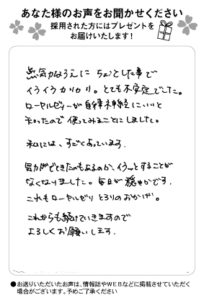 あなた様のお声をお聞かせください
採用された方にはプレゼントを
お届けいたします!
気力はうえに ちょっとした事で
イライラ カリカリ。とても不安定でした。
ローヤルゼリーが自律神経にいいと
きいたので使ってみることにしました。
私には、すごくあっています。
気力ができたのもあるのか、イラっとすることが
なくなりました。毎日が穏やかです。
これもローヤルゼリーとろりのおかげ。
これからも続けていきますので
よろしくお願いします。
●お送りいただいたお声は、情報誌やWEBなどに掲載させていただく
場合がございます。予めご了承ください